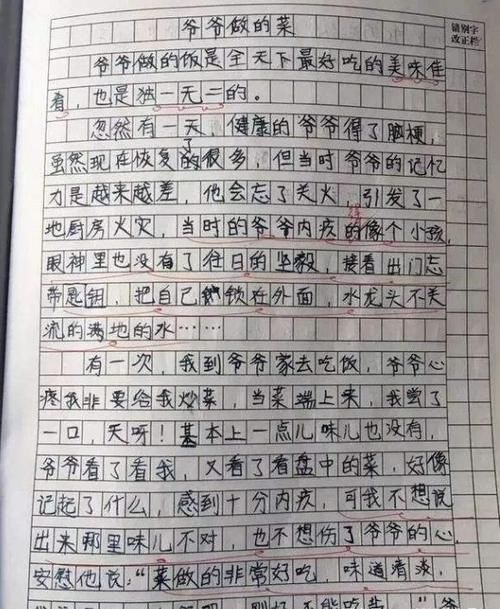 爷爷做的菜
错别字
改正栏
爷爷做的饭是全天下最好吃的美味佳
肴，也是独一无二的。
忽然有一天，健康的爷爷得了脑梗，
虽然现在恢复了的很多，但当时爷爷的记忆
力是越来越差，他会忘了关火，引发了一
地厨房火灾，当时的爷爷内疚的像个小孩，
眼神里也没有了往日的坚毅，接着出门忘
带匙钥，把自己锁在外面，水龙头不关
流的满地的水……
有一次，我到爷爷家去吃饭，爷爷心
疼我非要给我炒菜，当菜端上来，我尝了
一口，天呀！基本上一点儿味儿也没有，
爷爷看了看我，又看了看盘中的菜，好像
记起了什么，感到十分内疚，可我不想说
出来哪里味儿不对，也不想伤了爷爷的心，
安慰他说："菜做的非常好吃，味道有淡，